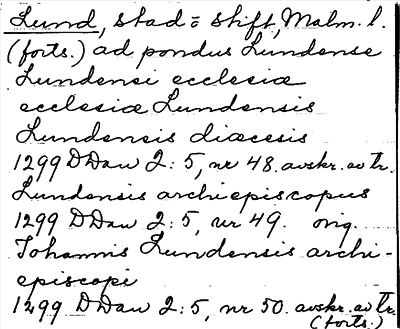 Lund, stad o. stift, Malm. l.
(forts.) ad pondus Lundense
Lundensi ecclesiæ
ecclesiæ Lundensis
Lundensis diæcesis
1299 DDan 2:5, nr 48. avskr. av tr.
Lundensis archiepiscopus
1299 DDan 2:5, nr 49. orig.
Johannis Lundensis archi-
episcopi
1299 DDan 2:5, nr 50. avskr. av tr.
(forts.)